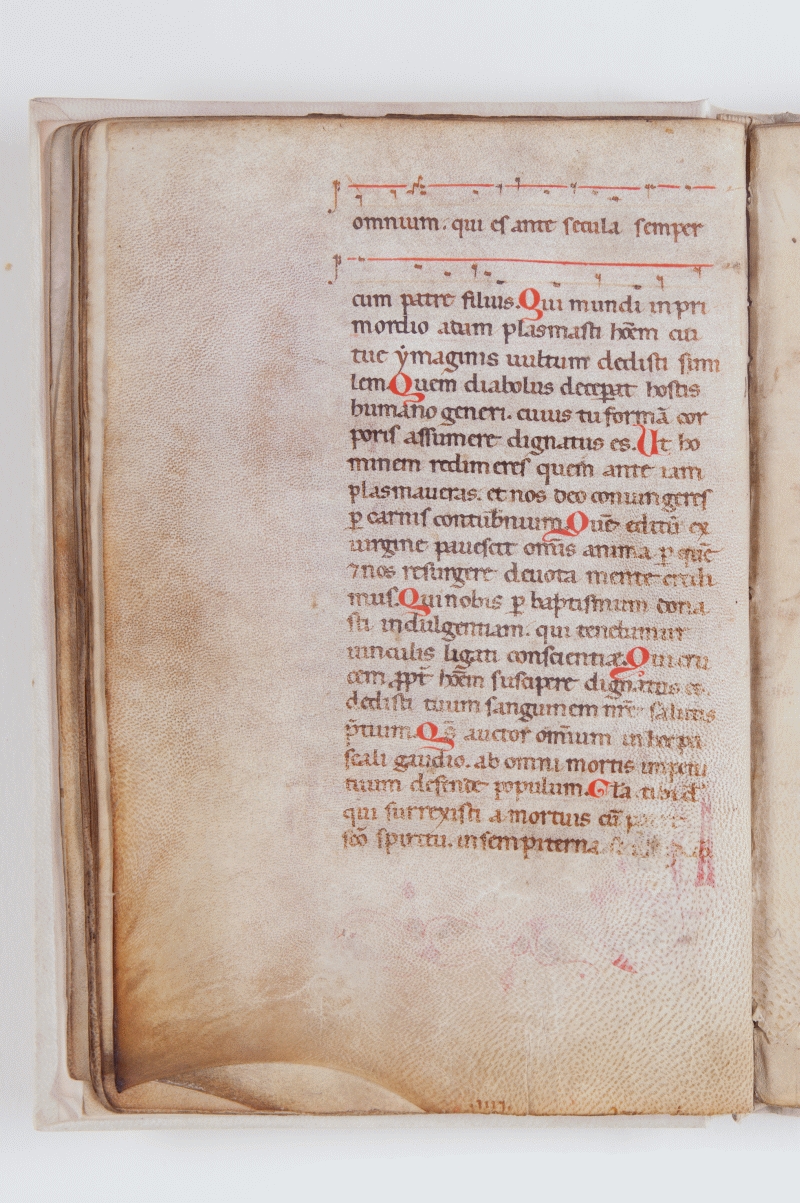 omnium. qui es ante secula semper
cum patre filius. Qui mundi in pri
mordio adam plasmasti hoēm cui
tue ẏmaginis uultum dedisti simi
lem. Quem diabolus decep̄at hostis
humano generi. cuius tu formā cor
poris assumere dignatus es. Ut ho
minem redimeres quem ante iam
plasmaueras. et nos deo coniungeres
ꝑ carnis contub̄nium. Quē editū ex
uirgine pauescit om̄is anima ꝑ quē
⁊ nos resurgere deuota mente credi
mus. Qui nobis ꝑ baptismum dona
sti indulgentiam. qui tenebamur
uinculis ligati conscientiæ. Qui cru
cem ꝓpt̄ hoēm suscipere dignatus es.
dedisti tuum sanguinem nr̄e salutis
p̄tium. Qs̄ auctor om̄ium in hoc pa
scali gaudio. ab omni mortis impetu
tuum defende populum. Gl̄a tibi d
qui surrexisti a mortuis cū
sc̄o spiritu. in sempiterna
.IIII.